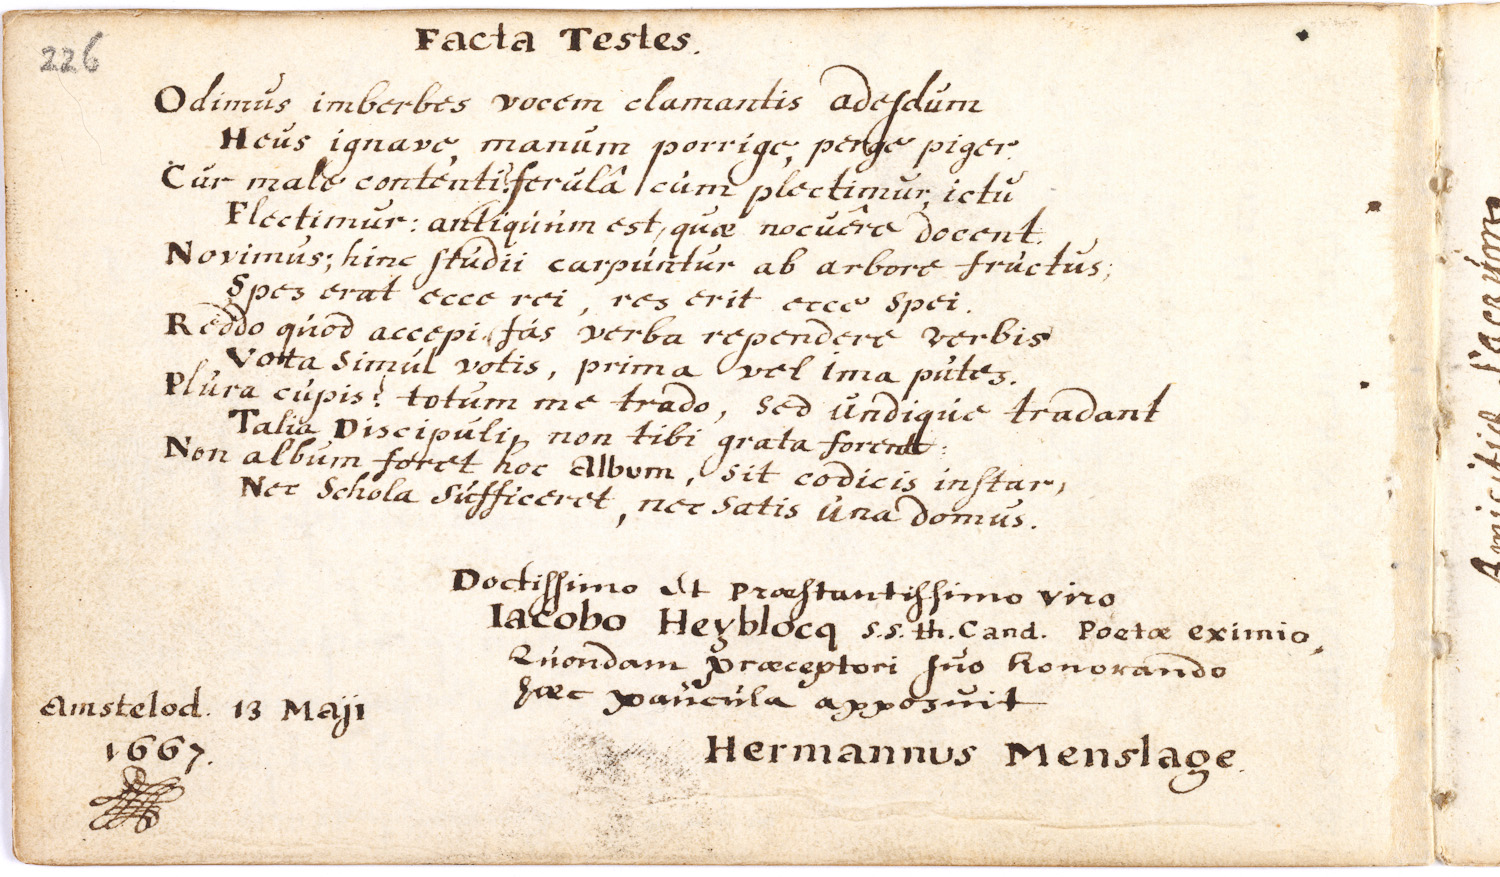 226
Facta Testes.
Odimus imberbes vocem clamantis adesdum
Heus ignave, manum porrige, perge piger.
Cur male contenti? ferulâ cum plectimur, ictu
Flectimur: antiquum est, quæ nocuêre docent.
Novimus; hinc studii carpuntur ab arbore fructus;
Spes erat ecce rei, res erit ecce spei.
Reddo quod accepi, fas verba rependere verbis
Vota simul votis, prima vel ima putes.
Plura cupis? totum me trado, sed undique tradant
Talia Discipuli, non tibi grata forent:
Non album foret hoc Album, sit codicis instar,
Nec Schola sufficeret, nec satis una domus.
Doctissimo et Præstantissimo viro
Iacobo Heyblocq s.s. th. Cand. Poetæ eximio,
Quondam Præceptori suo honorando
hæc paucula apposuit
Hermannus Menslage.
Amstelod. 13 Maji
1667.
Amicitiæ sacrum